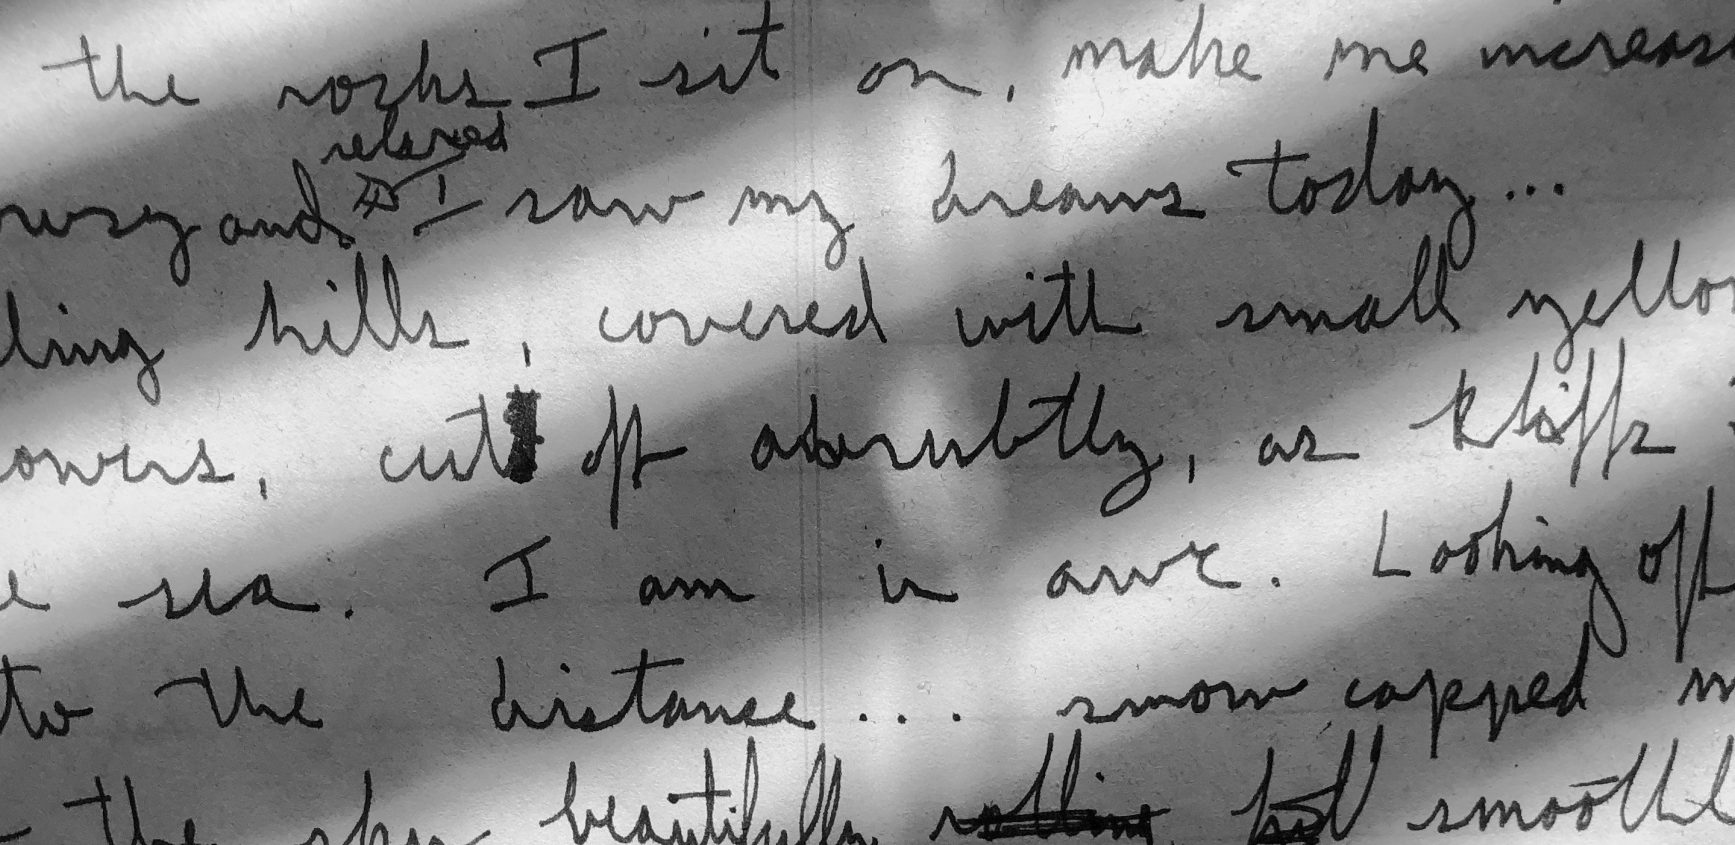 the rocks I sit on, make me increas
relaxed
owsy and I saw my dreams today...
ling hills, covered with small yellow
owers, cut off abrubtly, as kliffs
e sea. I am in awe. Looking off
to the distance... snow capped m
the sky beautifully rolling but smoothl